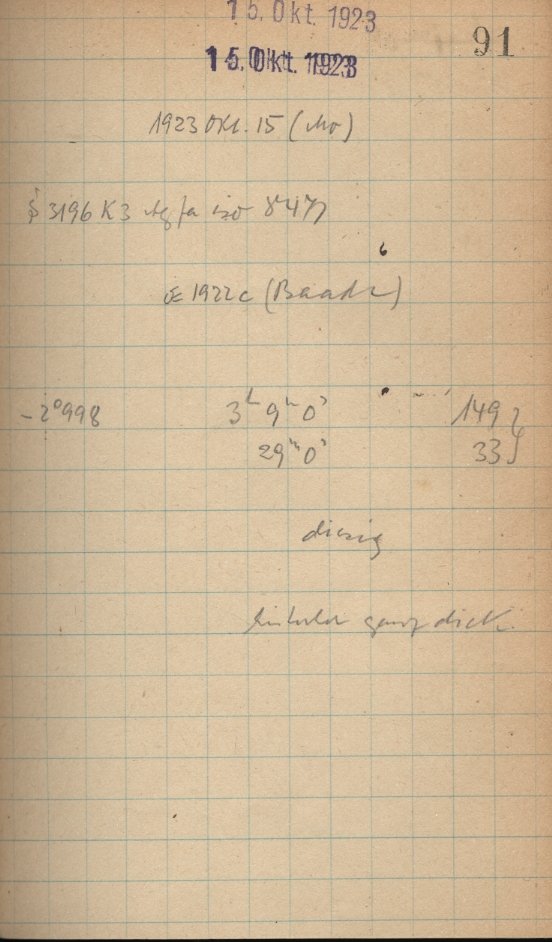 15. Okt. 1923
91
15. Okt. 1923
1923 Okt. 15 (Mo)
3196 K3 Agfa iso 8477
1922c (Baade)
-2°998 3ʰ 9ᵐ 0ˢ 149
29ᵐ 0ˢ 33
diesig
ganz dick.